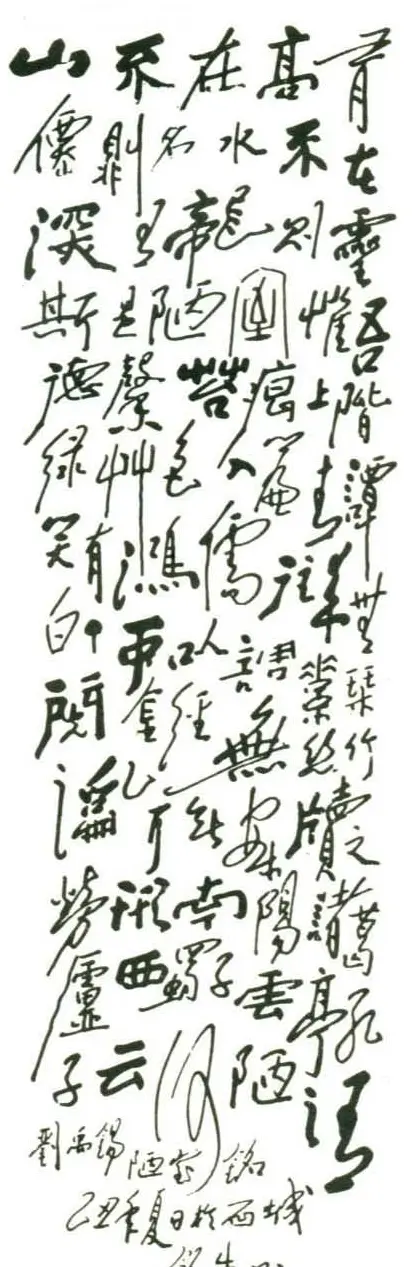 山不在高有
僊則名水不在
深有龍則靈
斯是陋室惟吾
德馨苔痕上階
綠艸色入簾青譚
笑有鴻儒往來無
白丁可以調素琹
閱金經無絲竹
亂耳無案牘之
勞形南陽諸葛
廬西蜀子雲亭孔
子云何陋之有
劉禹錫陋室銘
乙丑年夏日於西城